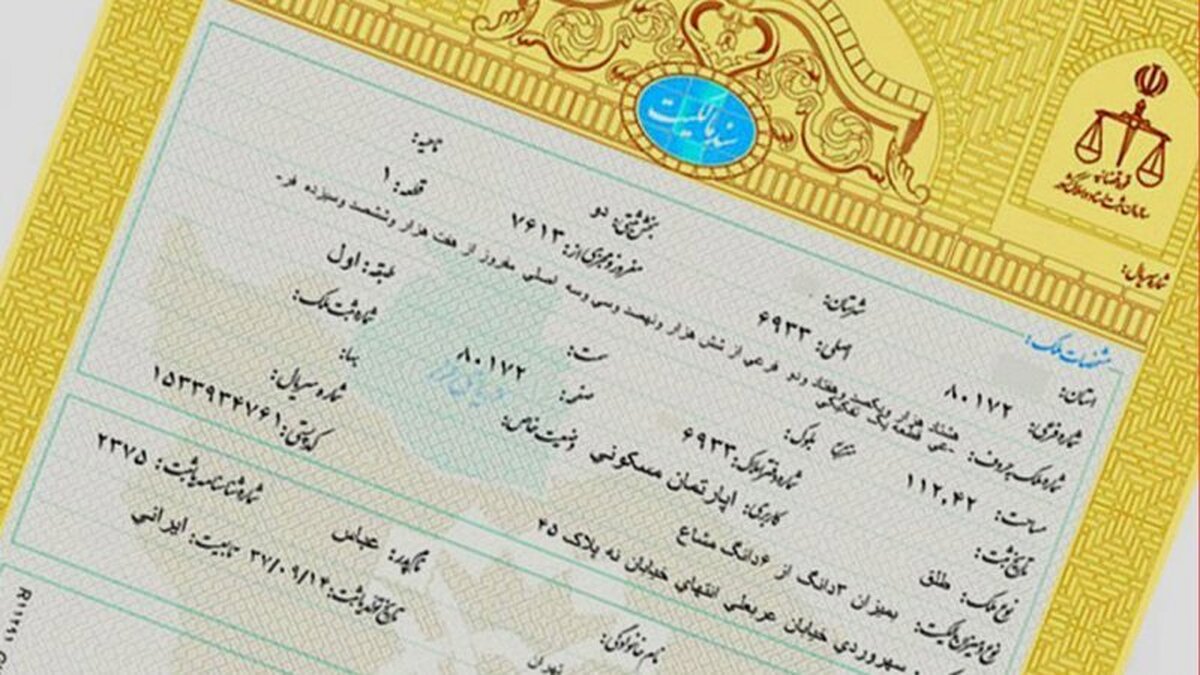 سند مالکیت
قوه قضائیه
سازمان ثبت اسناد و املاک کشور
شماره سریال:
مشخصات ملک:
استان: شهرستان: بخش ثبتی: دو ناحیه:
شماره فرعی: ۸۰۱۷۲ اصلی: ۶۹۳۳ مفروز و مجزی از: ۷۶۱۳ قطعه: ۱
شماره ملک بحروف: هشتاد هزار و یکصد و هفتاد و دو فرعی از شش هزار و نهصد و سی و سه اصلی مفروز از هفت هزار و ششصد و سیزده فر-
-عی قطعه یک تفکیکی
مساحت: ۱۱۲,۴۲ بلوک: سمت: طبقه: اول
تاریخ ثبت: شماره دفتر املاک: ۶۹۳۳ صفحه: ۸۰۱۷۲ شماره ثبت ملک:
نوع ملک: طلق کاربری: اپارتمان مسکونی وضعیت خاص: بها:
نوع و میزان مالکیت: بمیزان ۳دانگ از ۶دانگ مشاع شماره سریال:
سهروردی خیابان عربعلی انتهای خیابان نه پلاک ۴۵ کد پستی: ۱۵۳۳۹۳۴۷۶۱
نام خانوادگی: نام پدر: عباس شماره شناسنامه یا ثبت: ۲۳۷۵
تهران تاریخ تولد یا ثبت: ۳۷/۰۹/۱۴ تابعیت: ایرانی